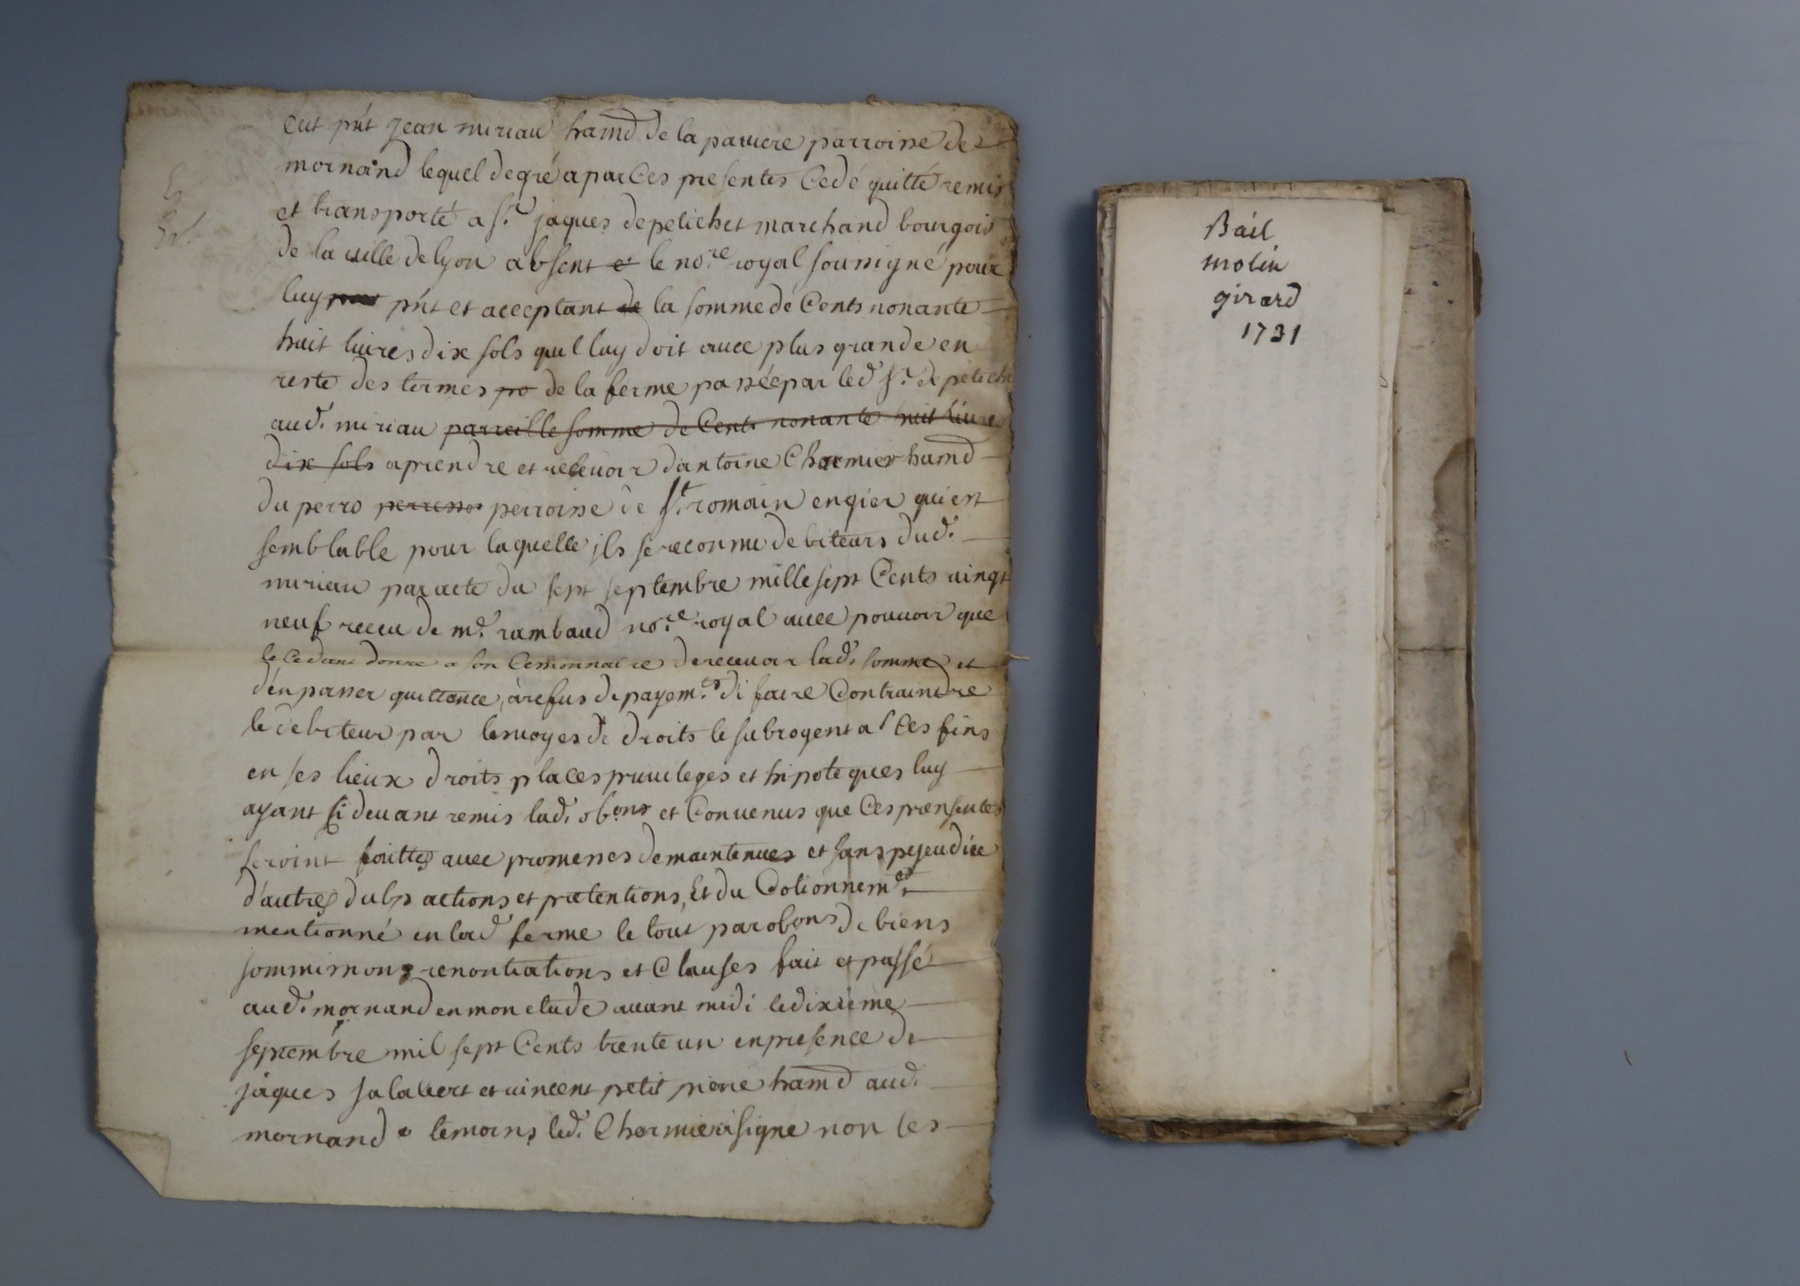 fut pñt jean miriau hamd de la pauiere parroisse de
mornand lequel de gré a par Ces presentes Cedé quitté remis
et transporté a Sr. jaques depelichet marchand bourgois
de la uille de lyon absent et le nore. royal soussigné pour
luy pñt et acceptant de la somme de Cents nonante
huit liures dix sols quil luy doit auec plus grande en
reste des termes pro de la ferme passée par led. Sr. de peliche
aud. miriau parreille somme de Cents nonante huit liures
dix sols a prendre et recevoir d'antoine Charmier hamd
du perro perroisse de St. romain en gier qui est
semblable pour laquelle ils se reconnu debiteurs dud.
miriau par acte du sept septembre mille sept Cents uingt
neuf receu de me. rambaud nore. royal auec pouuoir que
le Cedant donne a son Cessionnaire de receuoir lad. somme et
d'en passer quittance, a refus de payemt. di faire Contraindre
le debiteur par les uoyes de droits le subrogent a Ces fins
en ses lieux droits places priuileges et hipoteques luy
ayant si deuant remis lad. obons et Conuenus que Ces presentes
seroint faittes auec promesses de maintenues et sans prejeudice
d'autres dubs actions et pretentions, Et du Cotionnemt.
mentionné en lad. ferme le tout par obons de biens
sommissions renontiations et Clauses fait et passé
aud. mornand en mon etude auant midi le dixieme
septembre mil sept Cents trente un en presence de
jaques jalabert et uincent petit pierre hamd aud.
mornand temoins led. Charmier a signe non les
Bail
molin
girard
1731